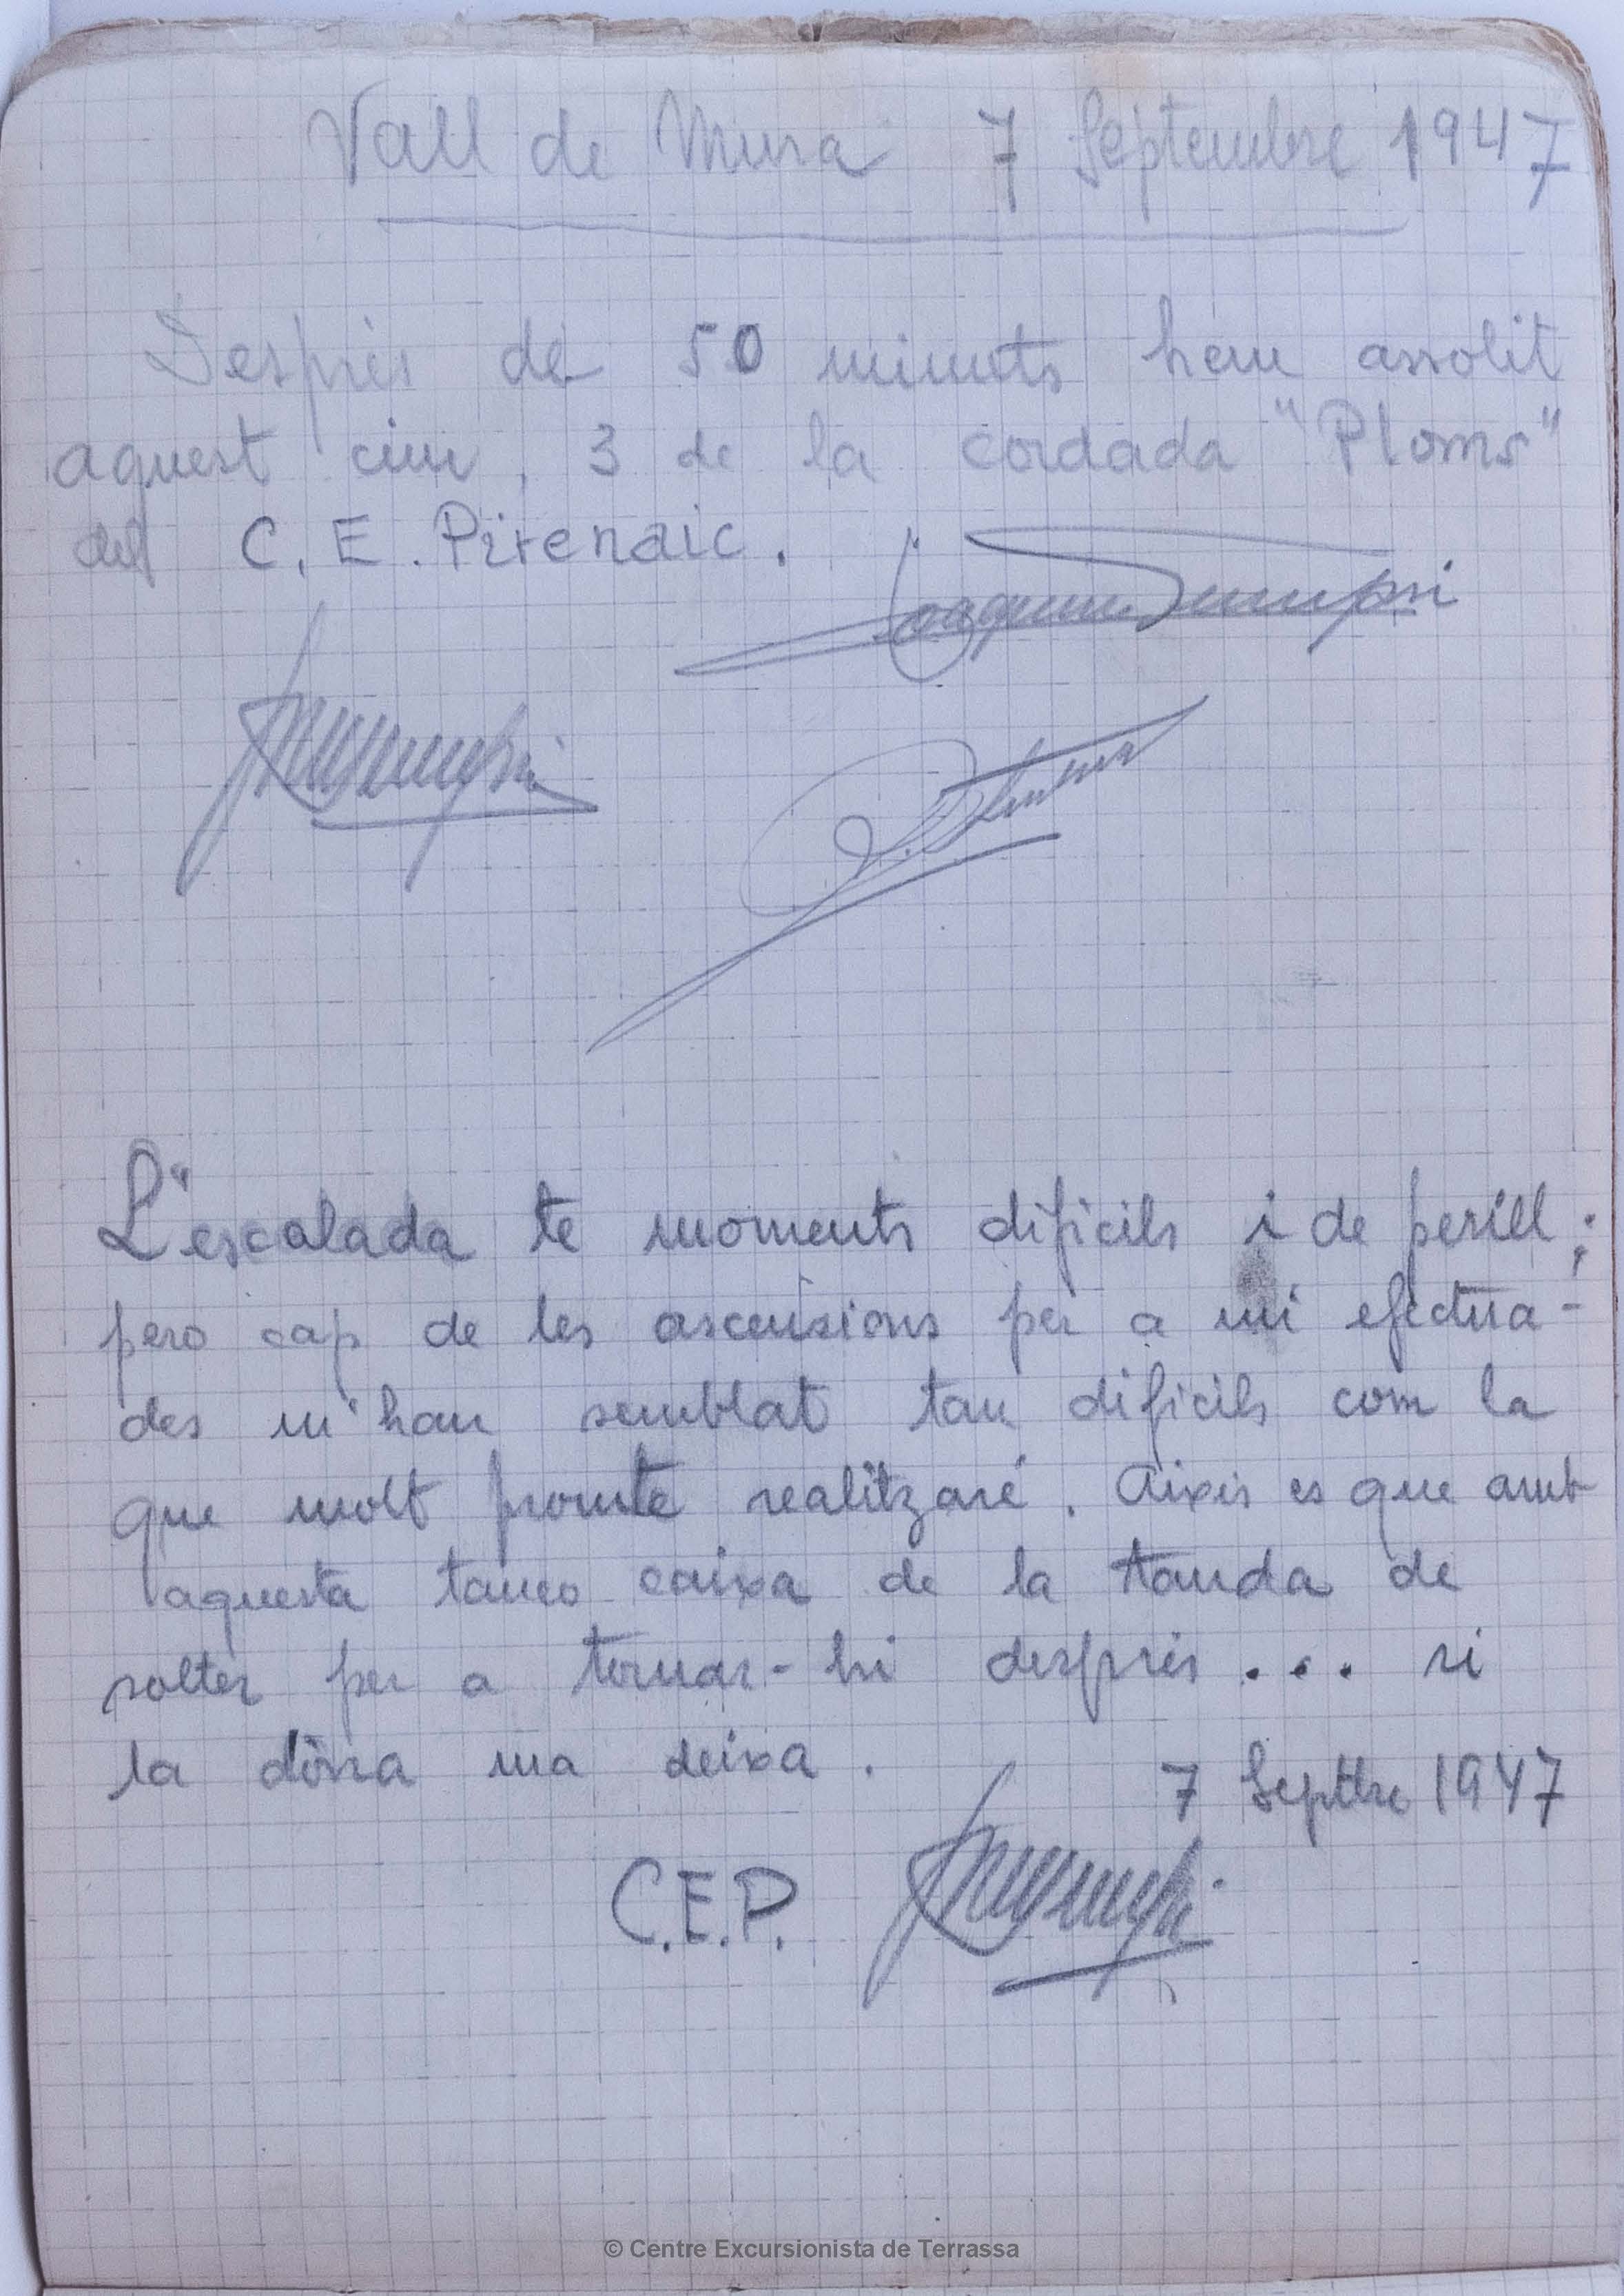 Vall de Mura 7 Septembre 1947
Desprès de 50 minuts hem assolit
aquest cim, 3 de la cordada "Ploms"
del C. E. Pirenaic.
Joaquim
L'escalada te moments dificils i de perill;
pero cap de les ascensions per a mi efectua-
des m'han semblat tan dificils com la
que molt promte realitzaré. Aixis es que amb
aquesta tanco caixa de la tanda de
solter per a tornar-hi desprès... si
la dòna ma deixa.
7 Septbre 1947
C.E.P.
© Centre Excursionista de Terrassa